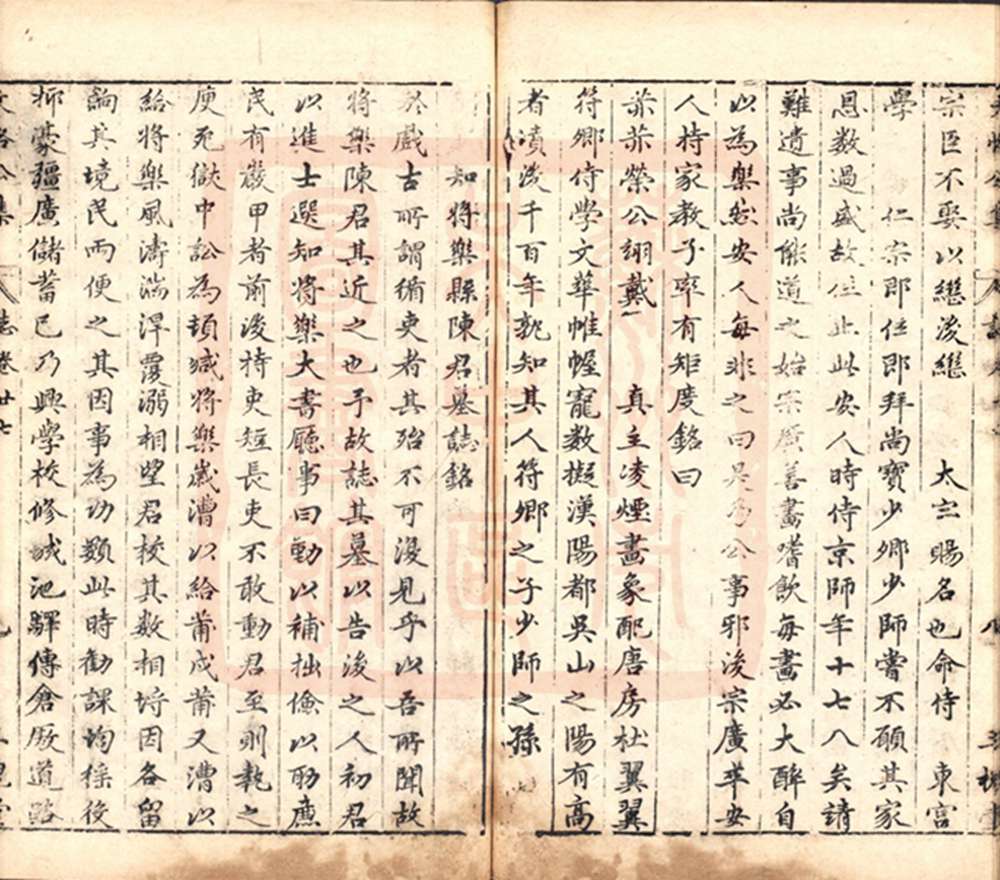 宗臣不娶以繼後繼　太宗賜名也命侍　東宮
學　仁宗即位即拜尚寶少卿少師嘗不願其家
恩數過盛故仕止此安人時侍京師年十七八矣請
難遺事尚能道之始宗廣善畵嗜飲每畵必大醉自
以為樂然安人每非之曰是乃公事邪後宗廣卒安
人持家教子率有矩度銘曰
榮公翊戴　真主凌煙畵象配唐房杜翼翼
符卿侍學文華帷幄寵數擬漢陽都吳山之陽有高
者墳後千百年孰知其人符卿之子少師之孫
知將樂縣陳君墓誌銘
於戲古所謂循吏者其殆不可復見乎以吾所聞故
將樂陳君其近之也予故誌其墓以告後之人初君
以進士選知將樂大書廳事曰勤以補拙儉以助廉
民有嚴甲者前後持吏短長吏不敢動君至則執之
庾死獄中訟為頓減將樂歲漕以給莆戍莆又漕以
給將樂風濤湍淠覆溺相望君校其數相埒因各留
餉其境民而便之其因事為功類此時勸課均徭役
抑豪彊廣儲蓄已乃興學校修城池驛傳倉廒道路